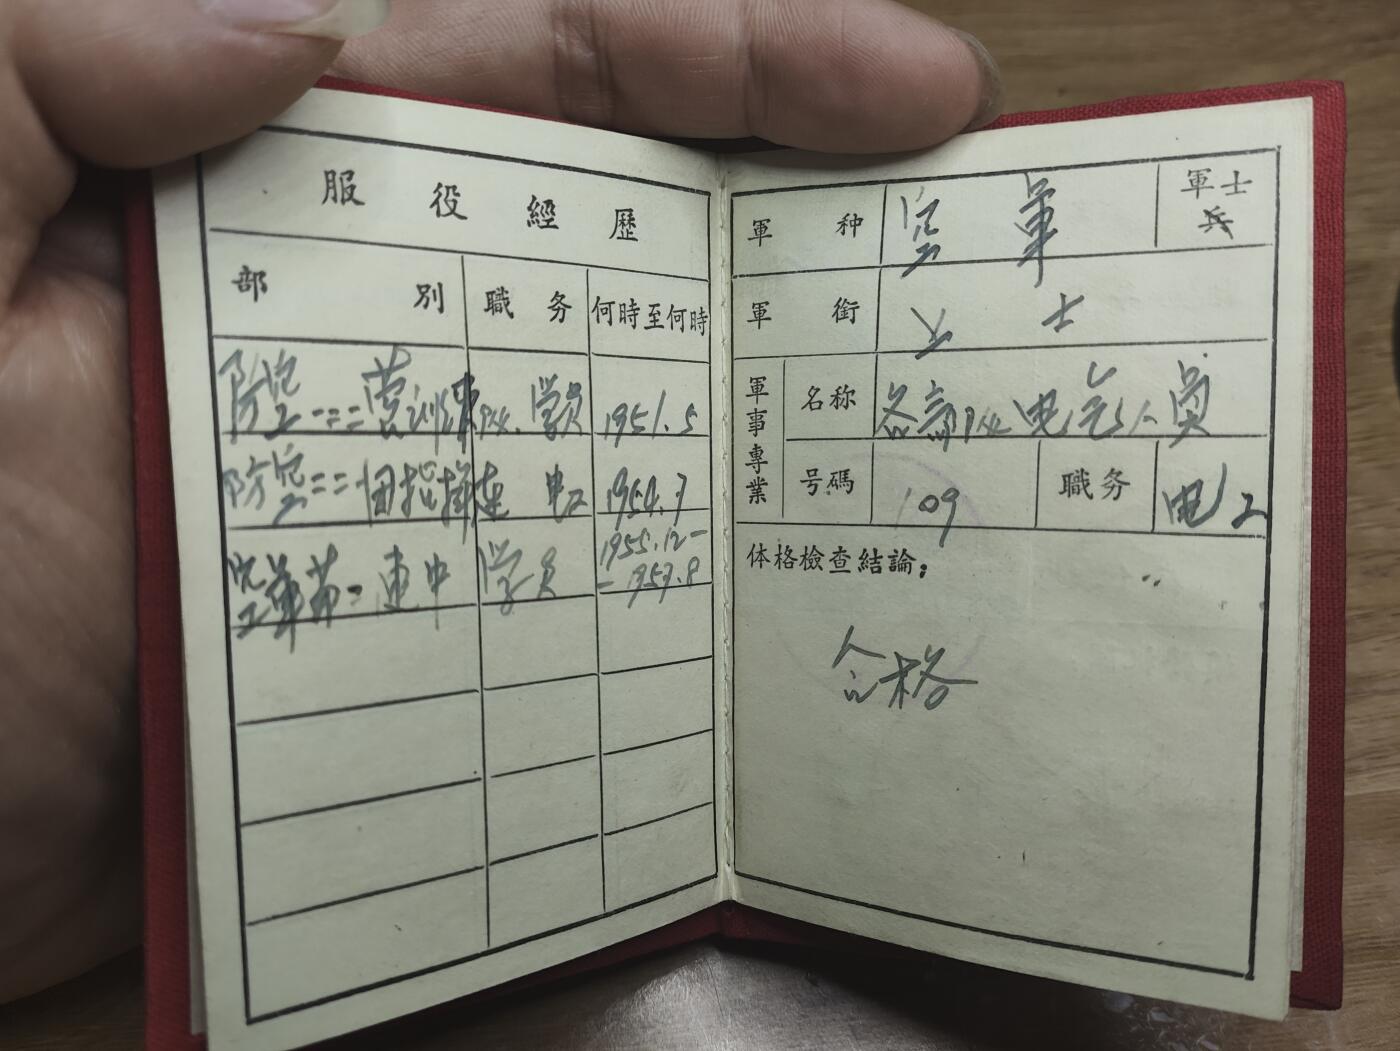 服役經歷
部別 職务 何時至何時
防空二二营训练队 学員 1951.5
防空二二团指揮連 电工 1954.7
空軍第二速中 学員 1955.12-
-1957.8
軍种 空軍 軍士
兵
軍銜 上士
軍事專業 名称 各部队电气人員
号碼 109 職务 电工
体格檢查結論：
合格